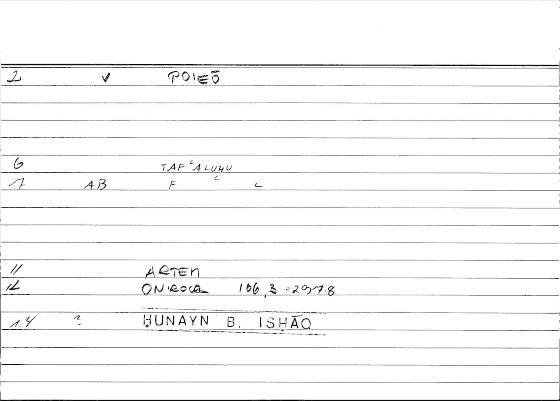 2 v POIEŌ
6 TAFʿALUHU
7 AB F ʿ L
11 ARTEM
12 ONIROCR 106,3 = 297.8
14 ? ḤUNAYN B. ISḤĀQ